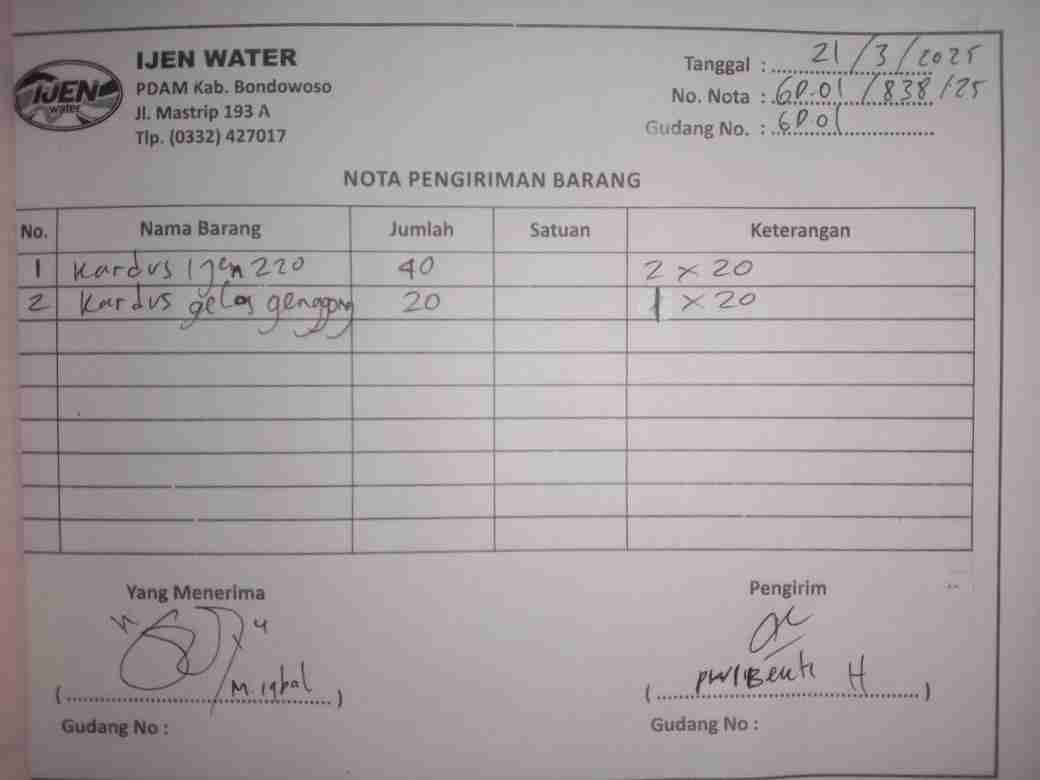 IJEN
water
IJEN WATER
PDAM Kab. Bondowoso
Jl. Mastrip 193 A
Tlp. (0332) 427017
Tanggal : 21/3/2025
No. Nota : GD.01 /838/25
Gudang No. : GD 01
NOTA PENGIRIMAN BARANG
No. Nama Barang Jumlah Satuan Keterangan
1 Kardus Ijen 220 40 2 x 20
2 Kardus gelas genggong 20 1 x 20
Yang Menerima Pengirim
(M. iqbal) (H)
Gudang No : Gudang No :